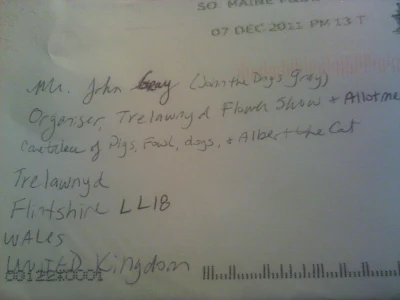 SO. MAINE P
07 DEC 2011 PM 13 T
Mr. John Gray (John the Dogs Gray)
Organiser, Trelawnyd Flower Show + Allotme
Caretaker of Pigs, Fowl, dogs, + Albert the Cat
Trelawnyd
Flintshire LL18
WALES
UNITED Kingdom